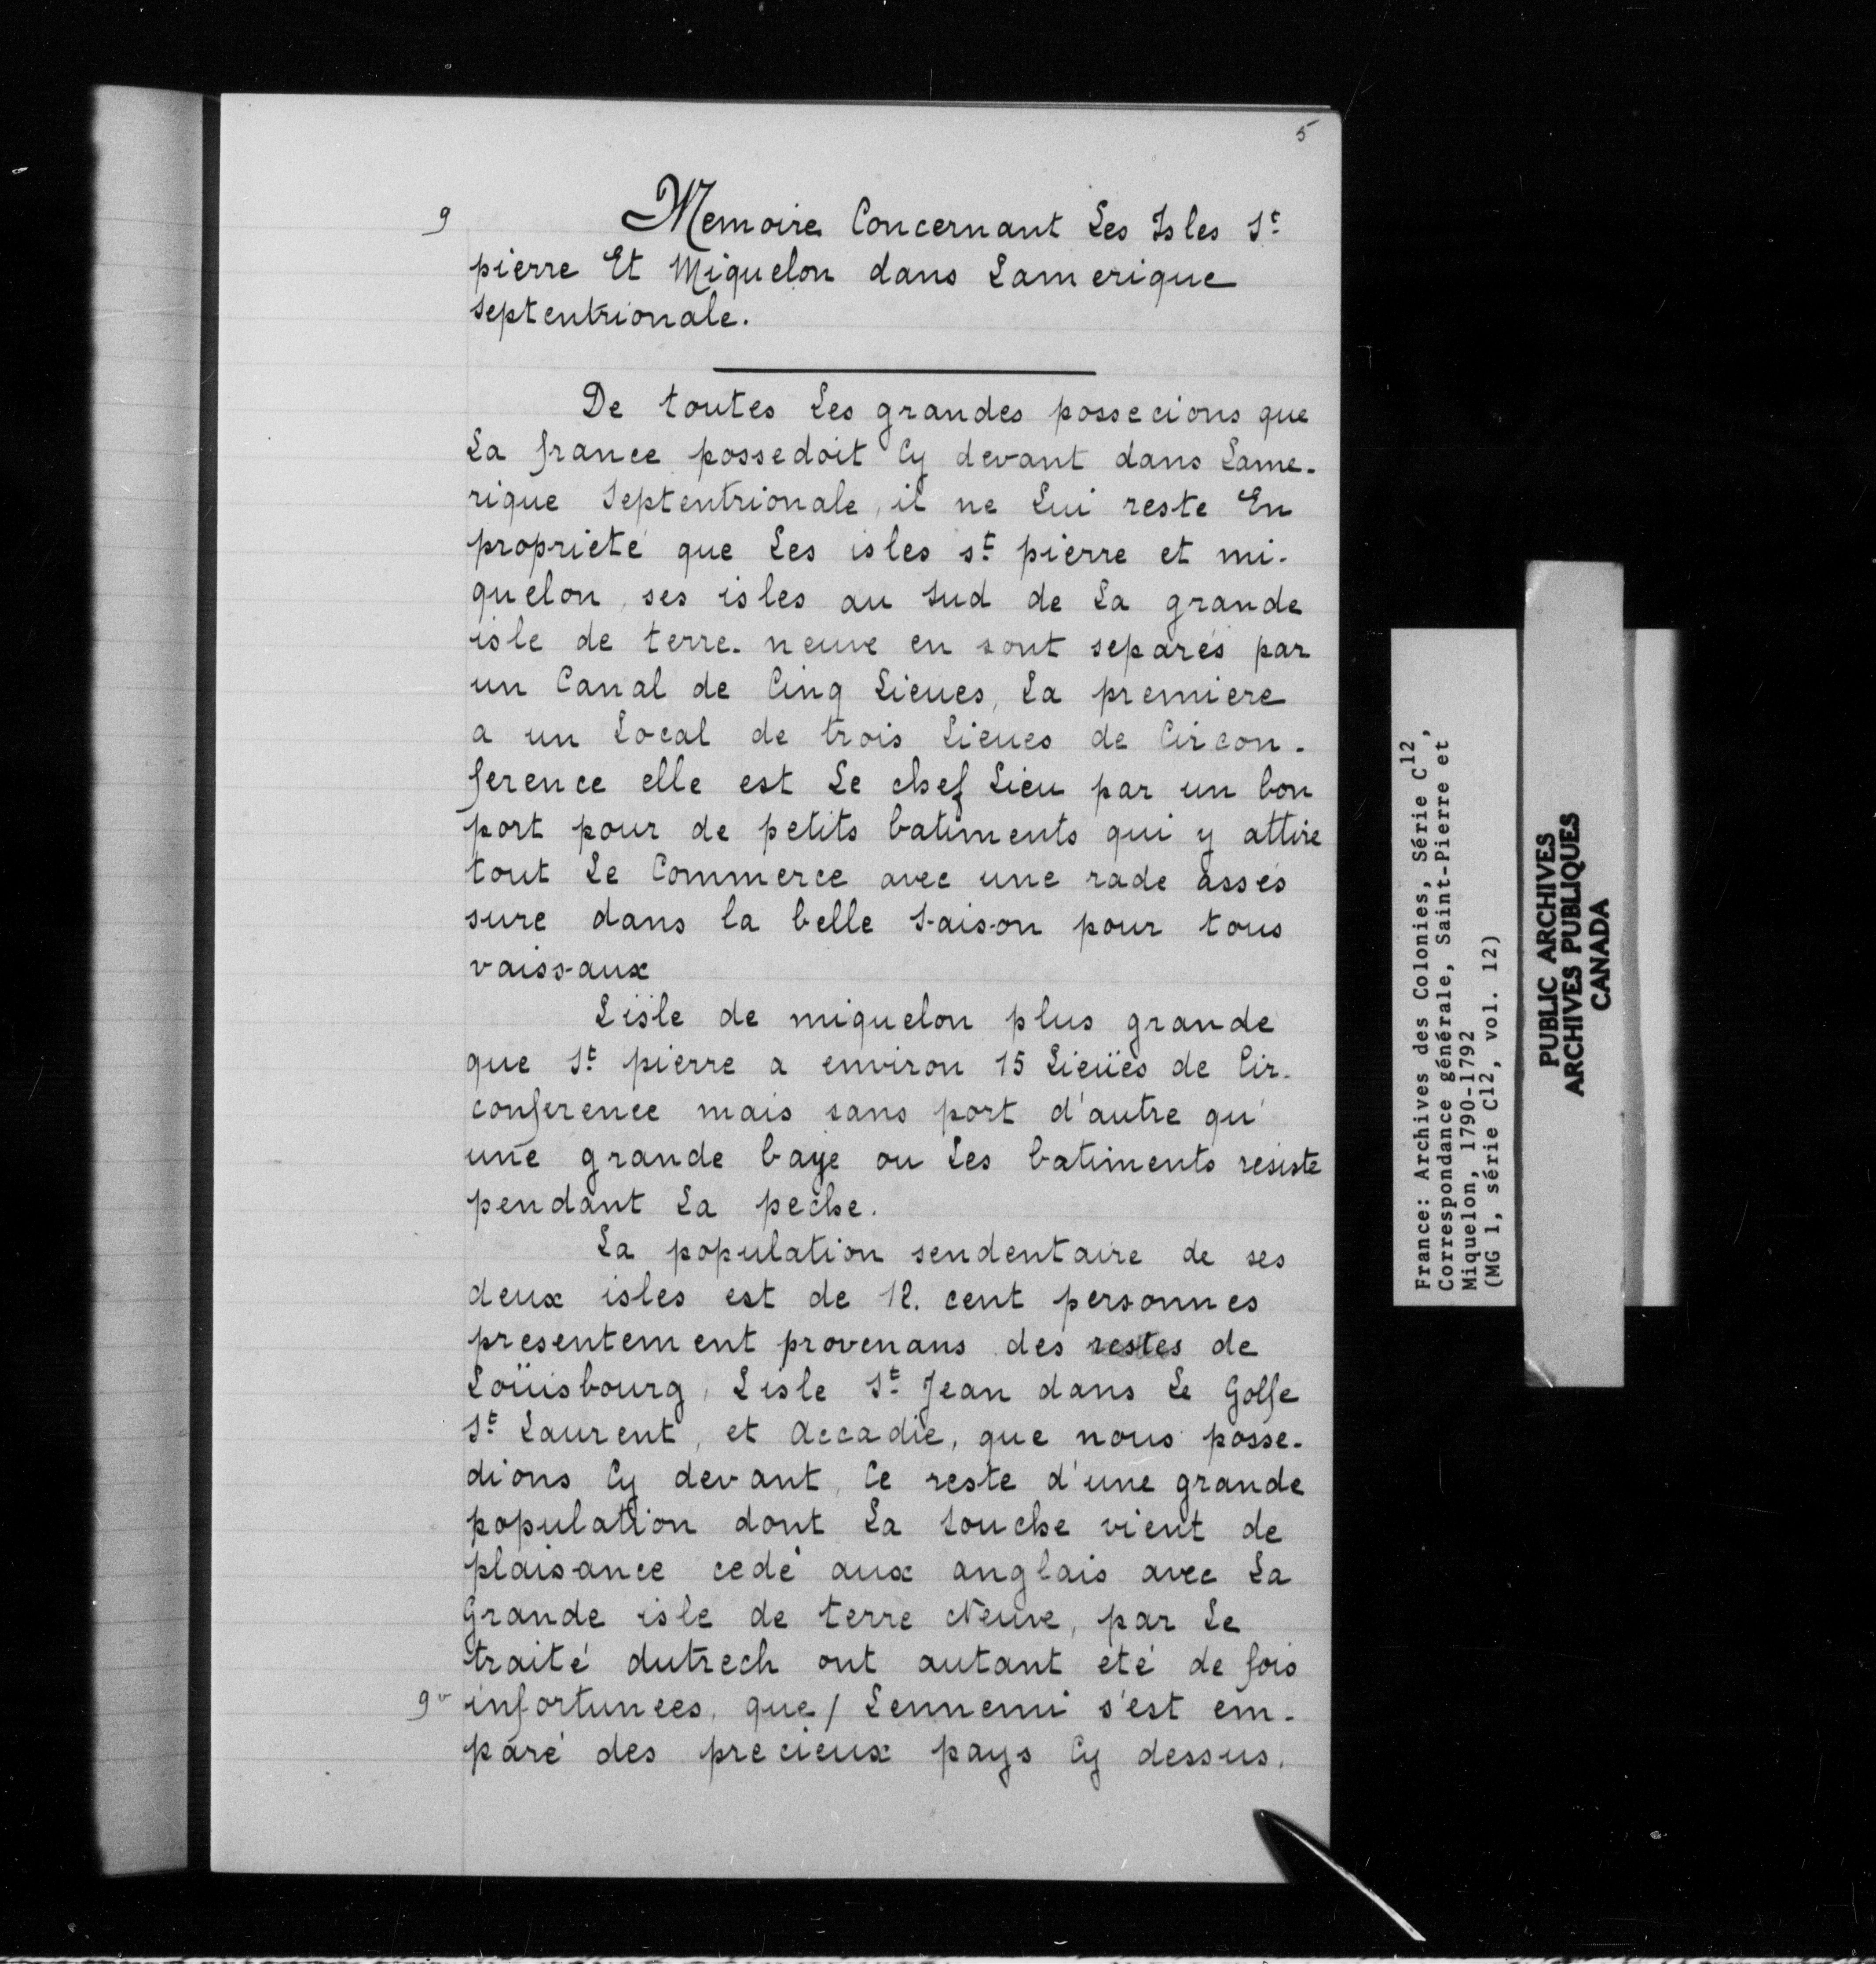 5
9
Memoire Concernant Les Isles St
pierre Et Miquelon dans Lamerique
septentrionale.
De toutes Les grandes possecions que
La france possedoit Cy devant dans Lame-
rique Septentrionale, il ne Lui reste En
propriété que Les isles st pierre et mi-
quelon, ses isles au sud de La grande
isle de terre-neuve en sont separés par
un Canal de Cinq Lieues, La premiere
a un Local de trois Lieues de Circon-
ference elle est Le chef Lieu par un bon
port pour de petits batiments qui y attire
tout Le Commerce avec une rade assés
sure dans la belle saison pour tous
vaissaux
L'isle de miquelon plus grande
que St pierre a environ 15 Lieües de Cir-
conference mais sans port d'autre qu'
une grande baye ou Les batiments resiste
pendant La peche.
La population sendentaire de ses
deux isles est de 12. cent personnes
presentement provenans des restes de
Loüisbourg, Lisle St Jean dans Le Golfe
St Laurent, et Accadie, que nous posse-
dions Cy devant, Ce reste d'une grande
population dont La souche vient de
plaisance cedé aux anglais avec La
Grande isle de terre Neuve, par Le
traité dutrech ont autant été de fois
9v infortunees, que / Lennemi s'est em-
paré des precieux pays Cy dessus.
France: Archives des Colonies, Série C12,
Correspondance générale, Saint-Pierre et
Miquelon, 1790-1792
(MG 1, série C12, vol. 12)
PUBLIC ARCHIVES
ARCHIVES PUBLIQUES
CANADA